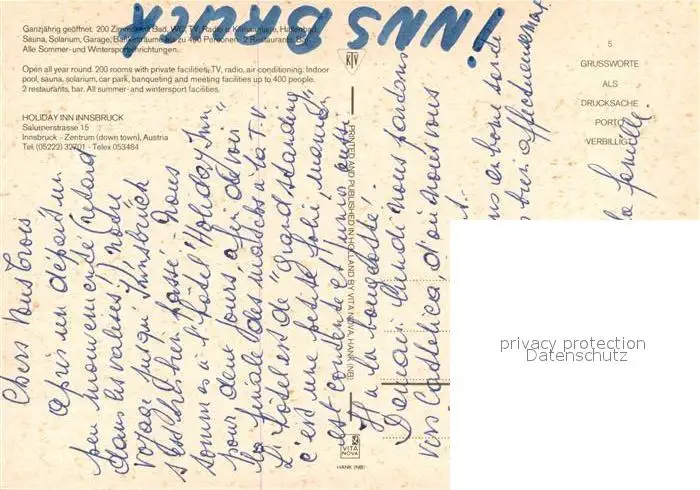 INNSBRUCK!
Ganzjährig geöffnet. 200 Zimmer mit Bad, WC, TV, Radio u. Klimaanlage, Hallenbad,
Sauna, Solarium, Garage, Bankettrӓume bis zu 400 Personen. 2 Restaurants, Bar.
Alle Sommer- und Wintersporteinrichtungen.
Open all year round. 200 rooms with private facilities, TV, radio, air conditioning. Indoor
pool, sauna, solarium, car park, banqueting and meeting facilities up to 400 people.
2 restaurants, bar. All summer- and wintersport facilities.
HOLIDAY INN INNSBRUCK
Salurnerstrasse 15
Innsbruck - Zentrum (down town), Austria
Tel. (05222) 32701 - Telex 053484
5
GRUSSWORTE
ALS
DRUCKSACHE
PORTO
VERBILLIGT
Chers Vous trois
Après un départ un
peu mouvementé (retard
dans les valises) notre
voyage jusqu'Innsbruck
s'est très bien passé. Nous
sommes à l'hôtel "Holiday Inn"
pour deux jours afin de voir
la finale des matchs à la TV
L'hôtel est de "Grand standing
c'est une petite folie, maman
est contente et
à la
Demain lundi nous partons
vers Castletica, d'où nous vous
en bonne santé
bien affectueusement
la famille.
PRINTED AND PUBLISHED IN HOLLAND BY VITA NOVA HANK (NB)
VITA
NOVA
HANK (NB)
privacy protection
Datenschutz